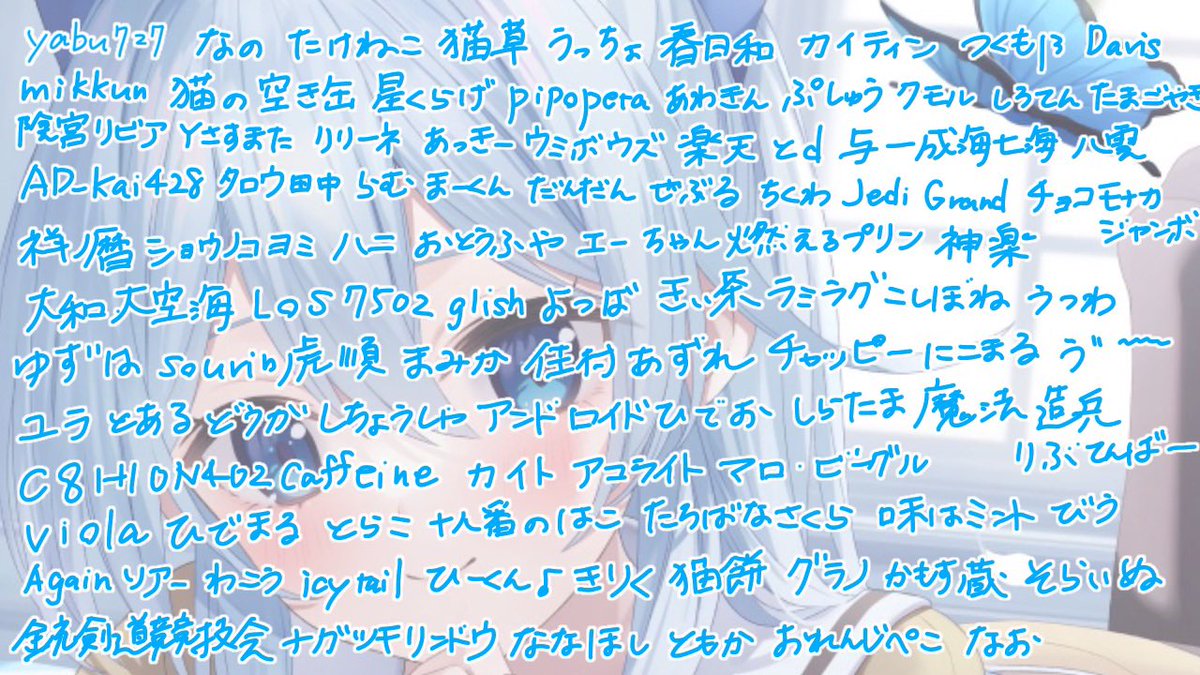 yabu727 なの たけねこ 猫草 うっちょ 春日和 カイティン つくもβ Davis
mikkun 猫の空き缶 星くらげ pipopera あわきん ぷしゅう クモル しろてん たまごやき
陰宮リビア Yさすまた リリーネ あっきー ウミボウズ 楽天 とd 与一成海七海 八雲
AD-kai428 タロウ田中 らむ まーくん だんだん ぜぶる ちくわ Jedi Grand チョコモナカ
ジャンボ
祥ノ暦 ショウノコヨミ ハニ おとうふや エーちゃん 燃えるプリン 神楽
大和大空海 LOS7502 glish よつば きい茶 ラミラグ こしぼね うつわ
ゆずは sourin 虎順 まみか 住村あずれ チャッピー にこまる ゔ〜
ユラ とあるどうがしちょうしゃ アンドロイドひでお しらたま 魔法造兵
りぶてんばー
C8H10N4O2Caffeine カイト アコライト マロ・ビーグル
viola ひでまる とらこ 十八番のはこ たちばなさくら 味はミント びう
Again ソアー わこう icytail ひーくん♪ きりく 猫餅 グラノ かもす蔵 そらいぬ
銃剣道競技会 ナガツキリンドウ ななほし ともか おれんじぺこ なお